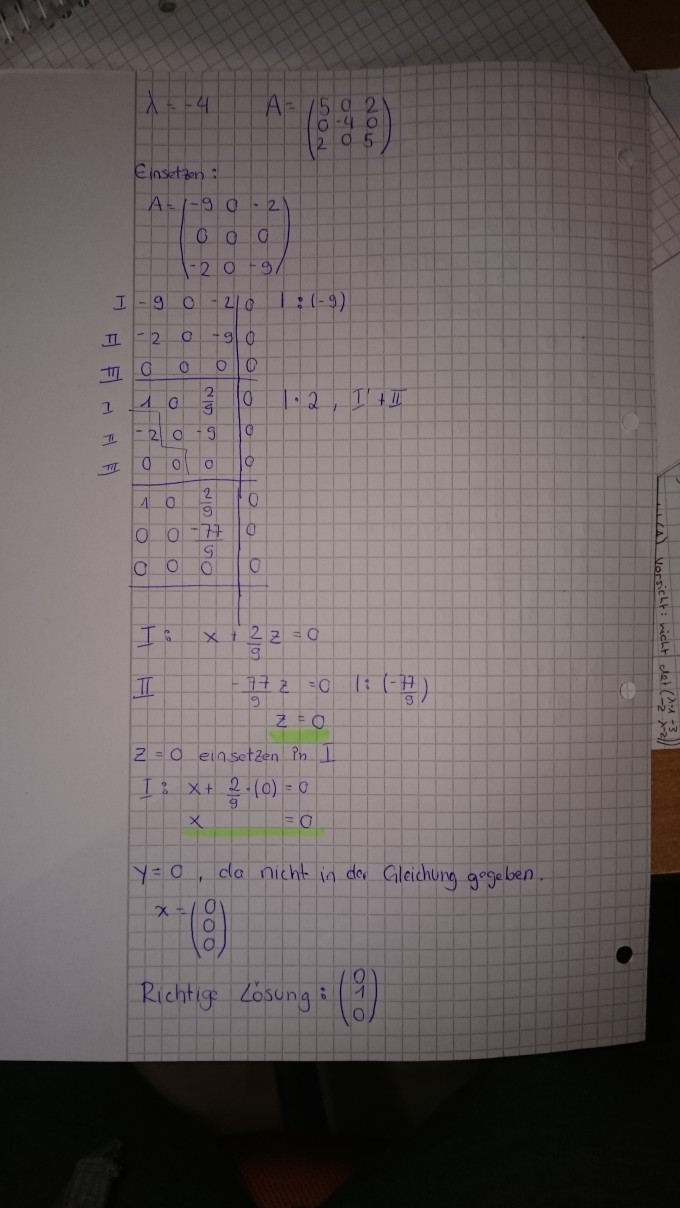 λ = -4 A = (5 0 2
0 -4 0
2 0 5)
Einsetzen:
A = (-9 0 -2
0 0 0
-2 0 -9)
I -9 0 -2 | 0 | : (-9)
II -2 0 -9 | 0
III 0 0 0 | 0
I 1 0 2/9 | 0 | · 2 , I' + II
II -2 0 -9 | 0
III 0 0 0 | 0
1 0 2/9 | 0
0 0 -77/9 | 0
0 0 0 | 0
I: x + 2/9 z = 0
II -77/9 z = 0 | : (-77/9)
z = 0
z = 0 einsetzen in I
I: x + 2/9 · (0) = 0
x = 0
y = 0 , da nicht in der Gleichung gegeben.
x = (0
0
0)
Richtige Lösung: (0
1
0)
Vorsicht: nicht det (λ-1 -3
-2 λ-2)